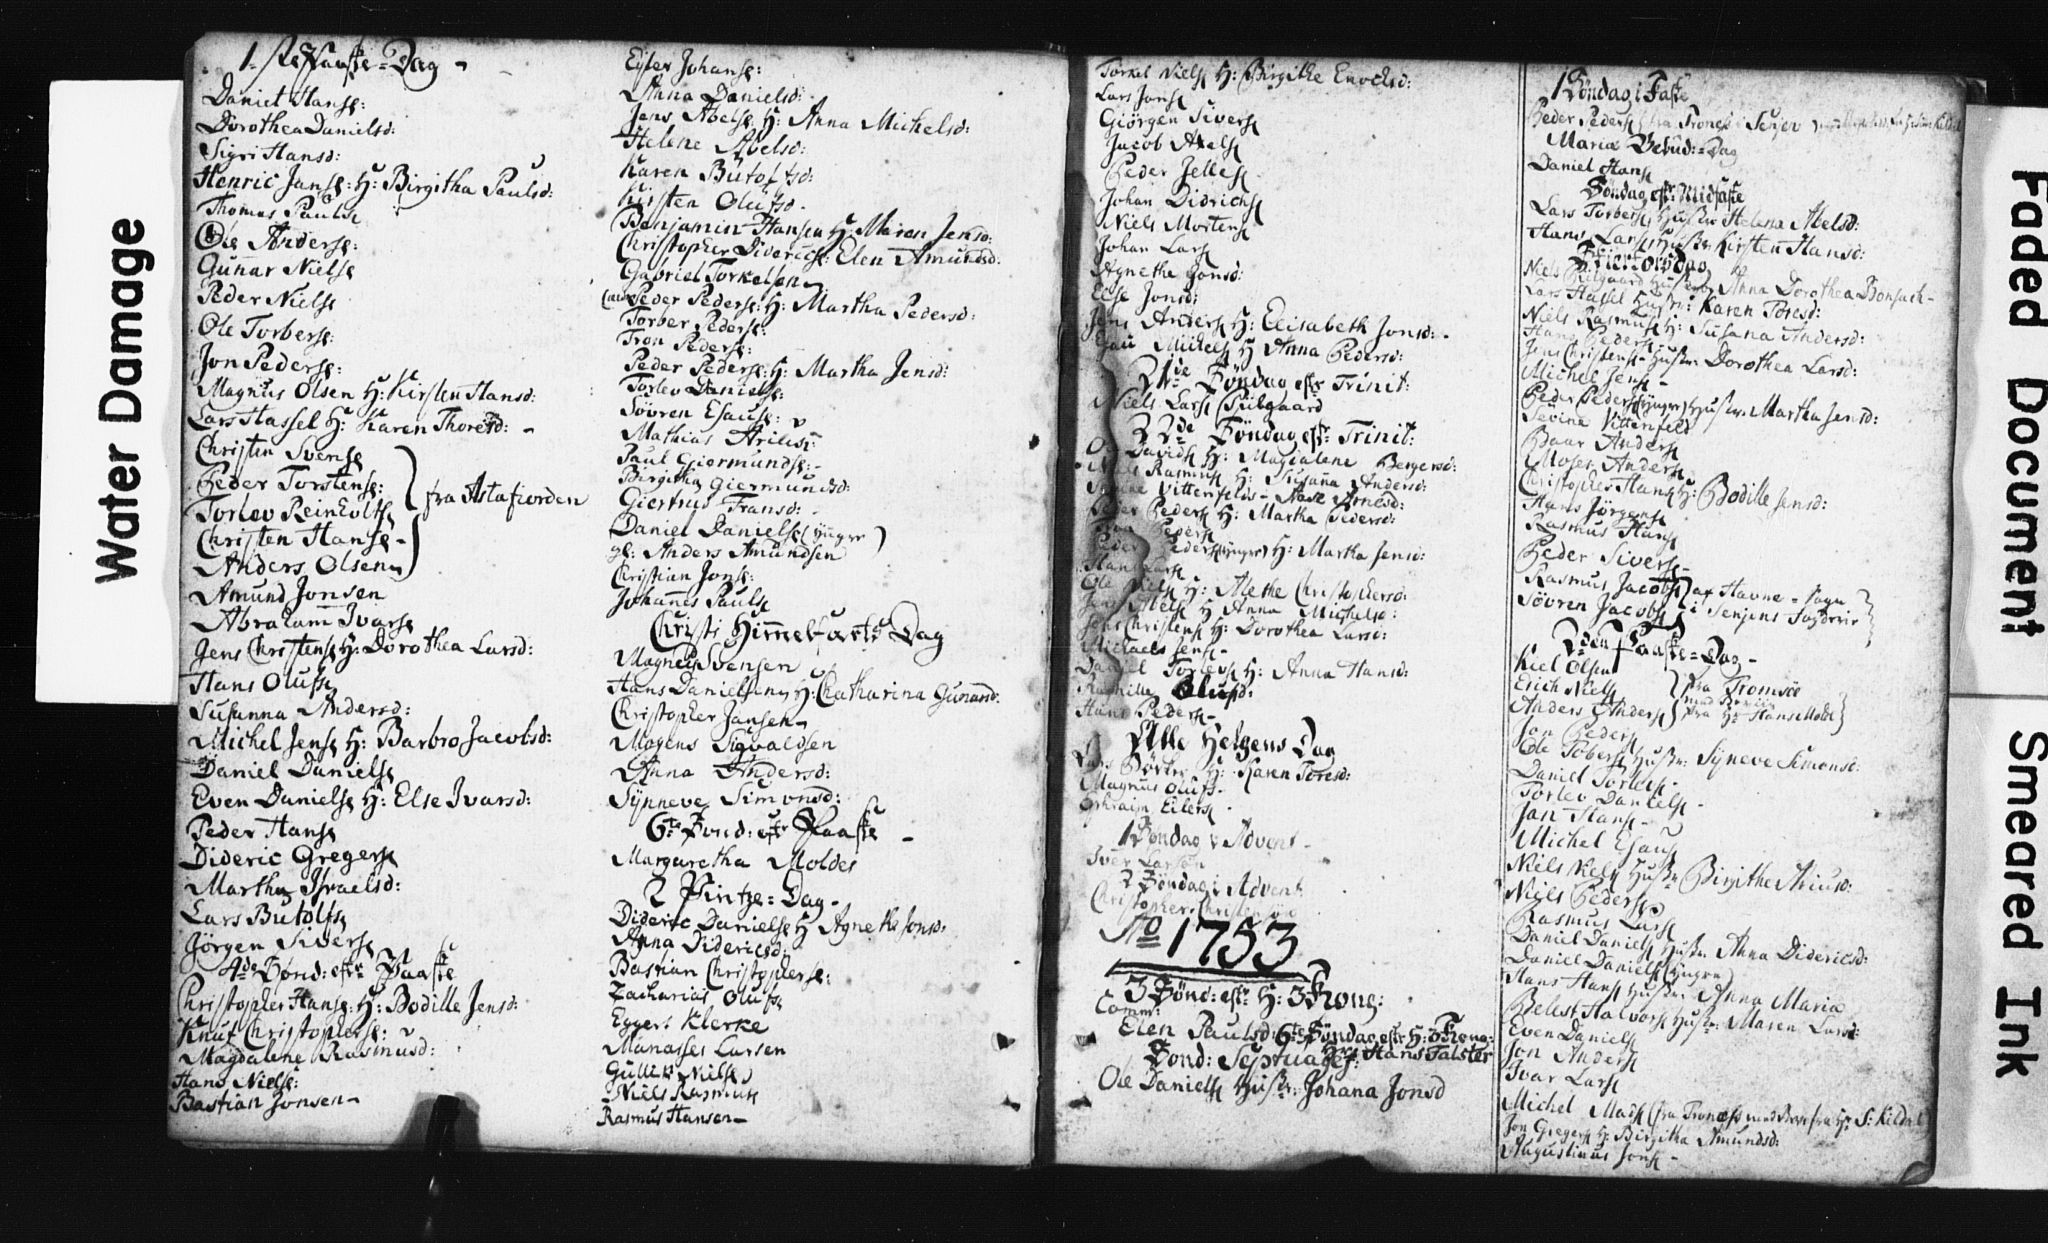 Water Damage
1. ste Paaske-Dag -
Daniel Hans:
Dorothea Danielsd:
Sigri Hansd:
Henric Jans: H: Birgitha Paulsd:
Thomas Pauls
Ole Anders:
Gunnar Niels
Peder Niels
Ole Torbers:
Jon Peders:
Magnus Olsen H: Kirsten Hansd:
Lars Hassel H: Karen Thoresd: -
Christen Svens
Peder Torstens:
Torlev Reinholts
fra Astafiorden
Christen Hans -
Anders Olsen
Amund Jonsen
Abraham Ivars
Jens Christens H: Dorothea Larsd:
Hans Olufs
Susanna Andersd:
Michel Jens H: Barbro Jacobsd:
Daniel Daniels
Even Daniels H: Else Ivarsd:
Peder Hans
Dideric Gregers
Martha Israelsd:
Lars Butolfs
Jörgen Sivers
4de Sönd: eftr Paaske
Christopher Hans: H: Bodille Jensd:
Knut Christophers:
Magdalene Rasmusd:
Hans Niels:
Bastian Jonsen -
Eyler Johans:
Anna Danielsd:
Jens Abels H: Anna Michelsd:
Helene Abelsd:
Karen Butolfsd:
Kirsten Olufsd -
Benjamin Hansen H: Maren Jensd:
Christopher Diderics: Elen Amundsd:
Gabriel Torkelsen
Peder Peders: H: Martha Pedersd:
Torber Peders:
Tron Peders:
Peder Peders: H: Martha Jensd:
Torlev Daniels:
Sövren Esaus:
Mathias Arilds:
Paul Giermunds: -
Birgitha Giermundsd:
Giertrud Fransd: -
Daniel Daniels (ÿngre)
gl: Anders Amundsen
Christian Jons:
Johannes Pauls
Christi Himmelfarts Dag
Magne Svensen
Hans Danielsen H: Chatharina Gunarsd:
Christopher Jansen -
Mogens Sigvaldsen
Anna Andersd:
Synneve Simonsd:
6te Sönd: eftr Paaske -
Margaretha Moldes
2 Pintze-Dag -
Dideric Daniels H Agnethe Jonsd:
Anna Didericsd:
Bastian Christophers:
Zacharias Olufs
Eggert Klerke
Manasses Larsen
Gullek Niels
Niels Rasmus
Rasmus Hansen -
Torkel Niels H: Birgithe Enochsd:
Lars Jons
Giörgen Sivers
Jacob Axels
Peder Jelles
Johan Didrichs
Niels Mortens
Johan Lars
Agnethe Jonsd:
Else Jonsd:
Jens Anders H: Elisabeth Jonsd: -
Esau Michels H Anna Pedersd:
21de Söndag eftr Trinit:
Niels Lars Spilgaard
22de Söndag eftr Trinit:
Davids H: Magdalene Bergersd:
Niels Rasmus H: Susana Andersd:
Peder Peders H: Martha Pedersd:
Tron Peders
Peder Peders (ÿnger) H: Martha Jensd:
Hans Lars
Ole Niels H: Alethe Christophersd:
Jens Abels H Anna Michelsd:
Jens Christens H: Dorothea Larsd:
Michael Jens -
Daniel Torlevs H: Anna Hansd:
Olufsd:
Hans Peders -
Alle Helgens Dag
H: Karen Toresd:
Magnus Olufs -
Ephraim Eilers -
1 Söndag i Advent -
Iver Larsen
2 Söndag i Advent:
Christopher Christensön
Ao 1753
3 Sönd: eftr H: 3 Kong:
Comm:
Elen Paulsd: 6te Söndag eftr H: 3 Kong:
Hr: Hans Falster
Sönd: Septuages:
Ole Daniels Hustr: Johana Jonsd
1 Söndag i Faste
Peder Peders fra Trones i Senjen
Mariæ Bebud: Dag
Daniel Hans
Söndag eftr Midfaste
Lars Torbers Hustr Helena Abelsd:
Hans Lars Hustr Kirsten Hansd:
Skiertorsdag
Niels Spilgaard Hustr Anna Dorothea Bonsach -
Lars Hassel Hustr: Karen Toresd:
Niels Rasmus H: Susana Andersd:
Hans Peders
Jens Christens - Hustr: Dorothea Larsd:
Michel Jens -
Peder Peders (ÿnger) Hustr. Martha Jensd:
Sevina Vittenfeld
Baar Anders
Moses Anders
Christopher Hans H: Bodille Jensd:
Hans Jörgens
Rasmus Hans
Peder Sivers -
Rasmus Jacobs af Havne-Sogn
Sövren Jacobs i Senjens Fogderie
2den Paaske-Dag -
Kiel Olsen
Erich Niels fra Tromsöe
Anders Anders fra Hr Hans Molde
Jon Peders
Ole Tobers Hustr: Syneve Simonsd:
Daniel Torlevs -
Torlev Daniels -
Jan Hans -
Michel Esaus
Niels Niels Hustr Birgithe Ariusd:
Niels Peders
Rasmus Lars
Daniel Daniels Hustr Anna Didericsd:
Daniel Daniels (ÿngre)
Hans Hans Hustr: Anna Maria
Belest Halvors Hustr: Maren Larsd:
Even Daniels
Jon Anders
Ivar Lars
Michel Mads (fra Trones med Bevis fra Hr S: Kildal
Jon Gregers H: Birgitha Amundsd:
Augustinus Jons -
Faded Document
Smeared Ink